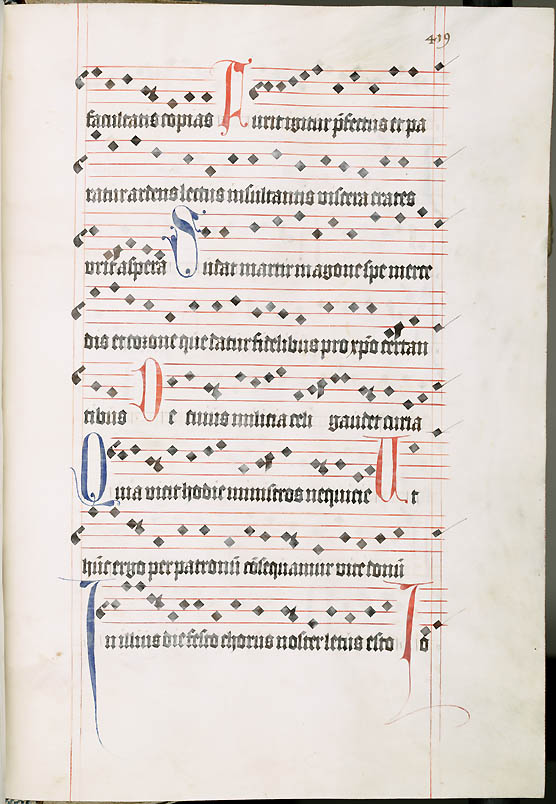 419
facultatis copias Furit igitur p̄fectus et pa
ratur ardens lectus insultantis viscera crates
urit aspera Sudat martir in agone spe merce
dis et corone que datur fidelibus pro xp̄o certan
tibus De cuius milicia celi gaudet curia
Quia vicit hodie ministros nequicie Ut
hūc ergo per patronū cōsequamur vite donū
In illius die festo chorus noster letus esto Jo